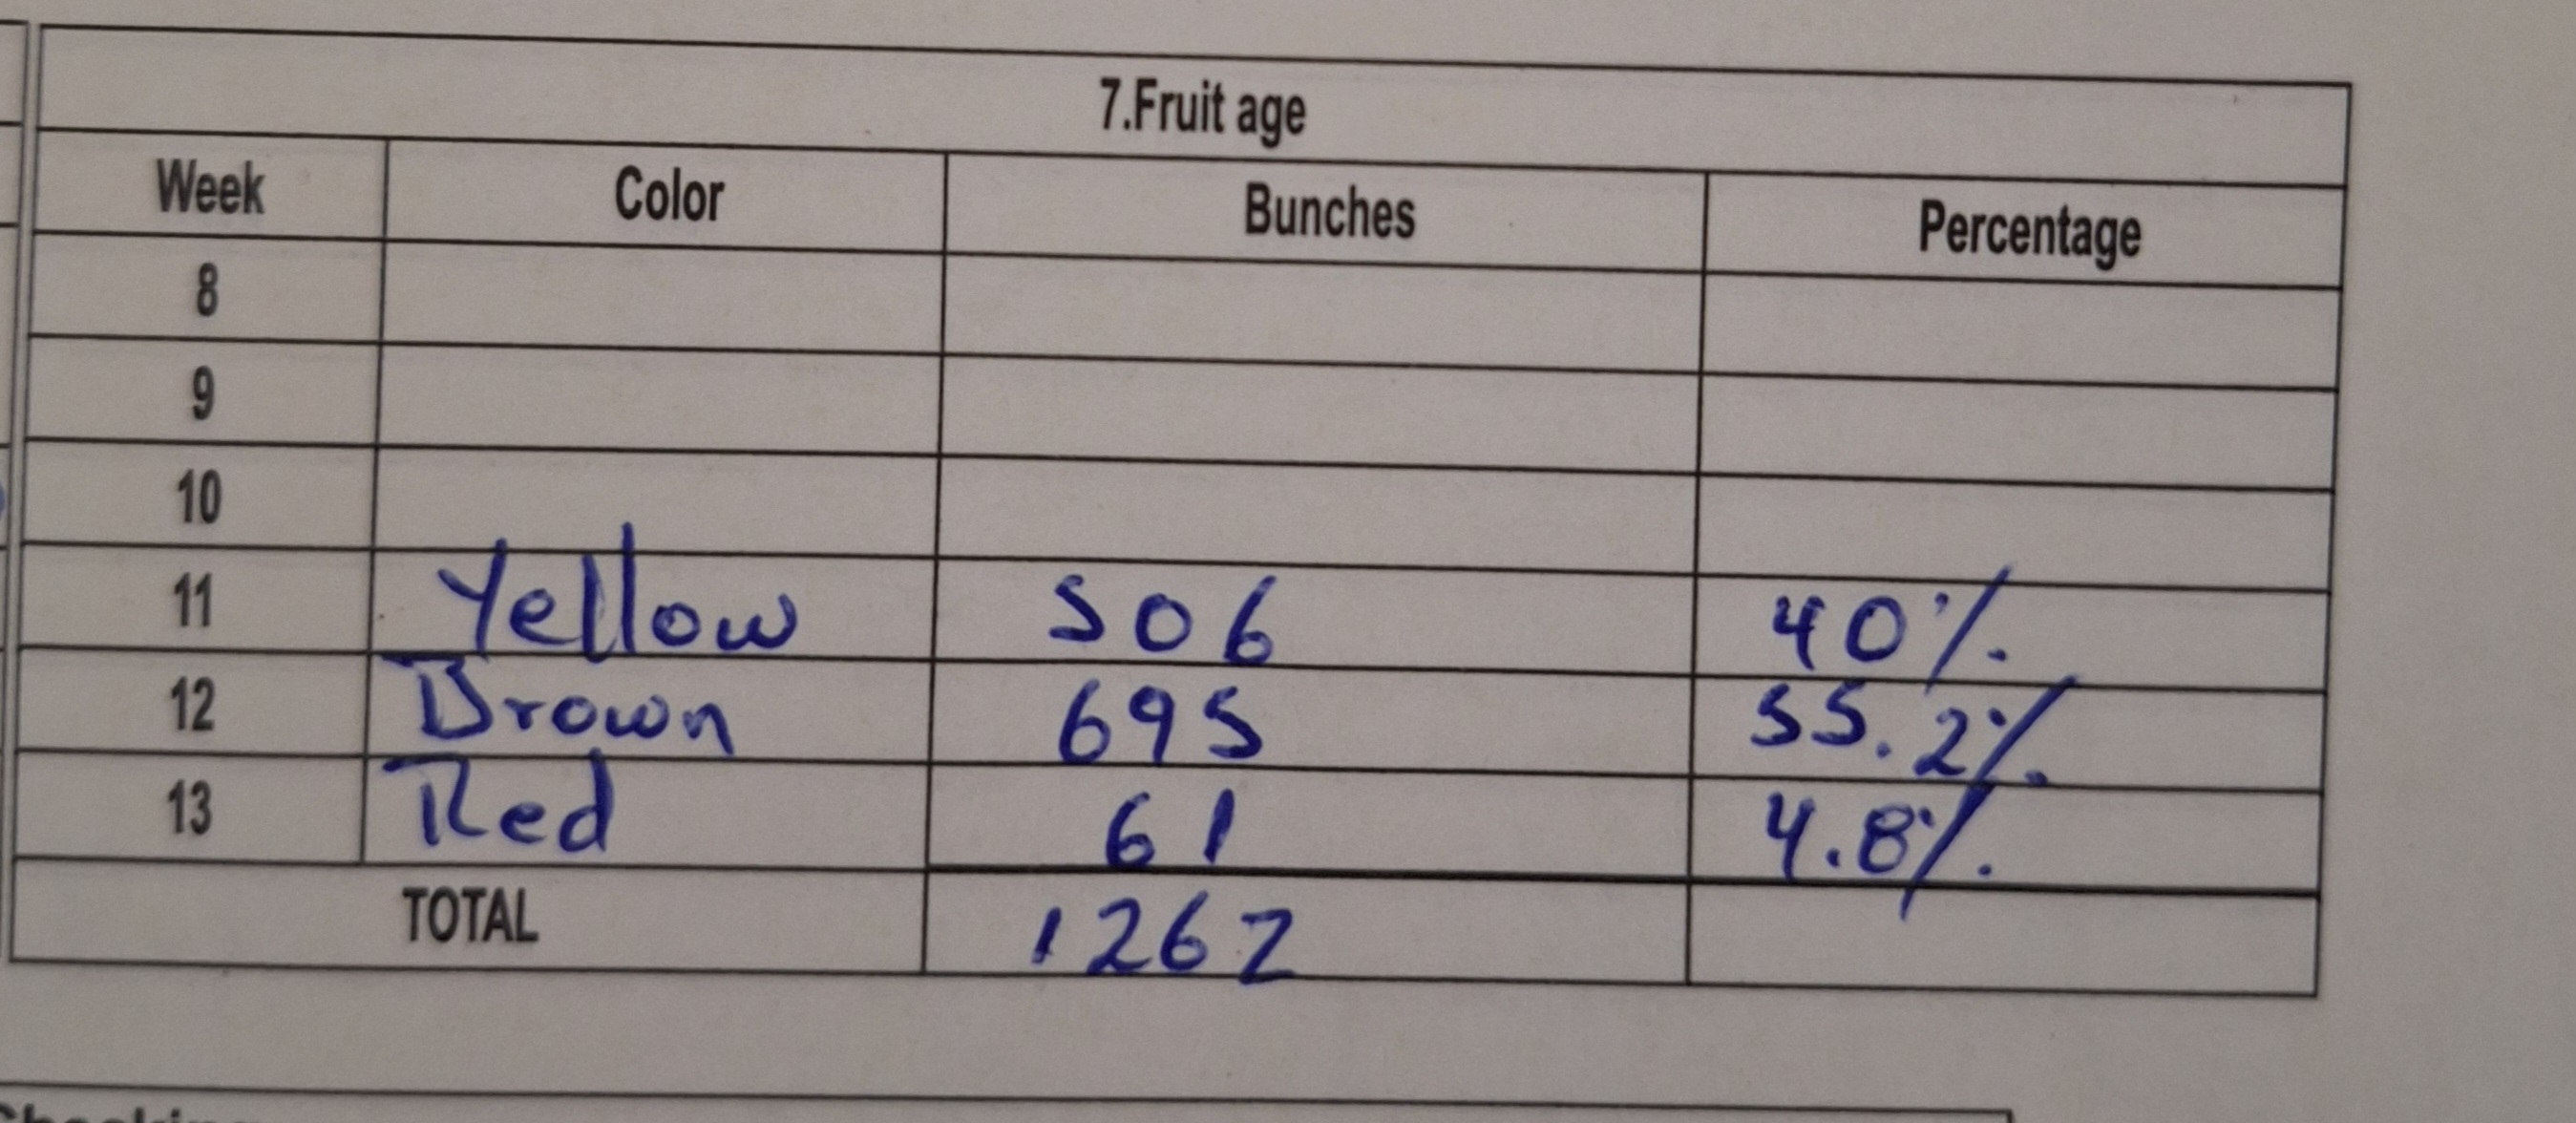 7.Fruit age
Week Color Bunches Percentage
8
9
10
11 Yellow 506 40%
12 Brown 695 55.2%
13 Red 61 4.8%
TOTAL 1262